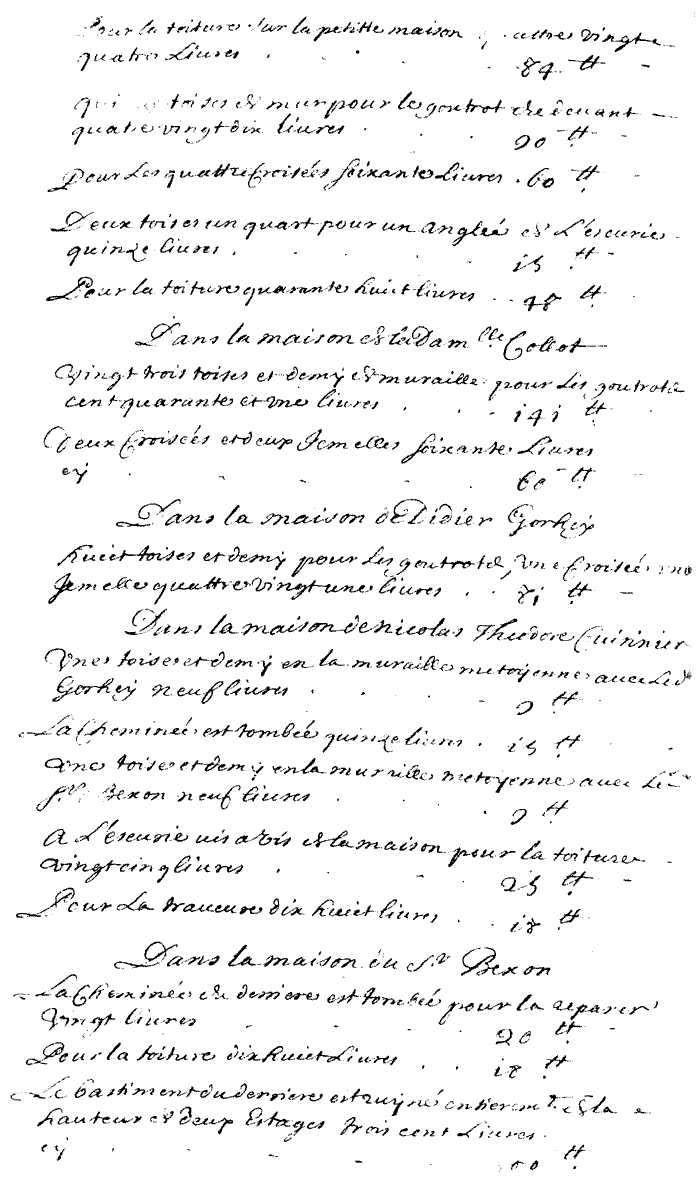 Pour la toiture sur la petitte maison quattre vingt
quatre Livres . . . 84 tt
toises de mur pour le goutrot de devant
quatre vingt dix livres . . . 90 tt
Pour Les quattre Croisées soixante Livres . 60 tt
Deux toises un quart pour un angleé de L'escurie
quinze livres . . . 15 tt
Pour la toiture quarante huict livres . . 48 tt
Dans la maison de la Dam lle Collot
Vingt trois toises et demy de muraille pour Les goutrots
cent quarante et une livres . . 141 tt
Deux Croisées et deux Jemelles soixante Livres
cy . . . 60 tt
Dans la maison de Didier Gorhey
huict toises et demy pour Les goutrots, une Croisée une
Jemelle quattre vingt une livres . . 81 tt
Dans la maison de nicolas Theodore Cuinnier
Une toise et demy en la muraille metoyenne avec Led
Gorhey neuf livres . . . 9 tt
La Cheminée est tombée quinze livres . 15 tt
Une toise et demy en la muraille metoyenne avec Le
Sr Bexon neuf livres . . . 9 tt
A L'escurie vis a vis de la maison pour la toiture
vingt cinq livres . . . 25 tt
Pour La traveure dix huict livres . . 18 tt
Dans la maison du Sr Bexon
La Cheminée de derriere est tombée pour la reparer
Vingt livres . . . 20 tt
Pour la toiture dix huict Livres . . 18 tt
Le bastiment du derriere est ruyné entierem.t de la
hauteur de deux Estages trois cent Livres
cy . . . 00 tt